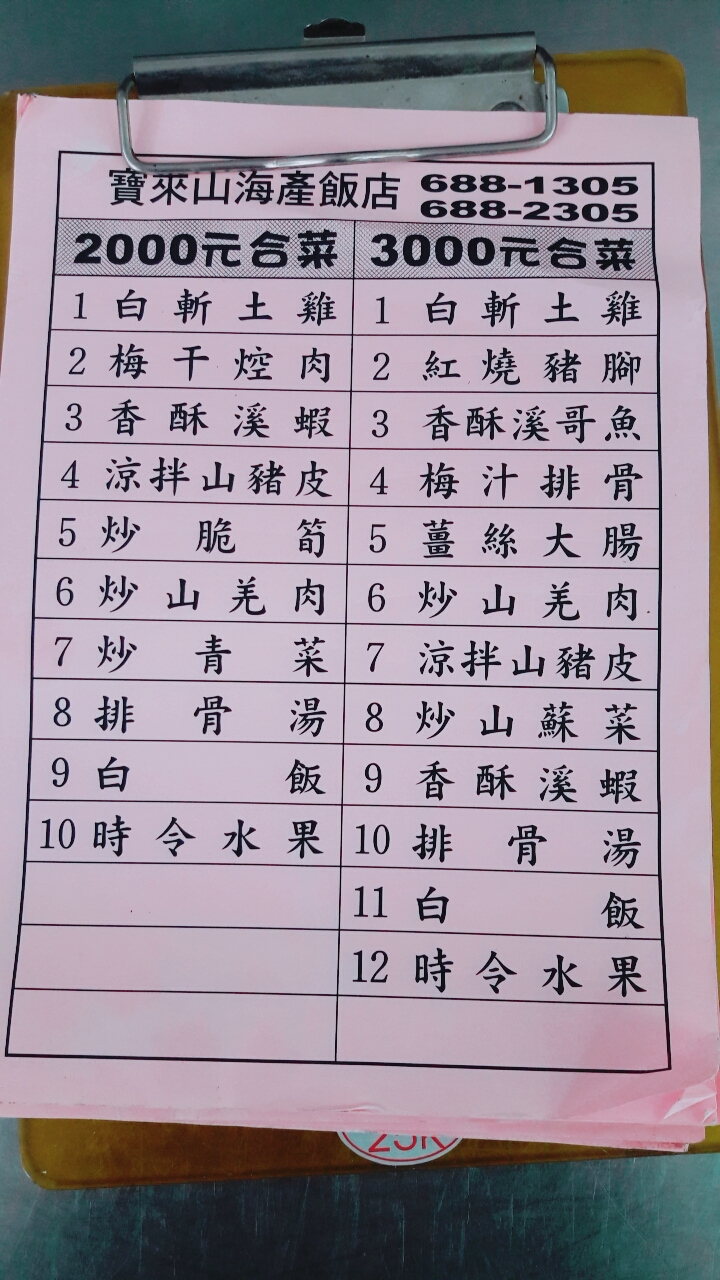 寶來山海產飯店 688-1305
688-2305
2000元合菜 3000元合菜
1 白斬土雞 1 白斬土雞
2 梅干焢肉 2 紅燒豬腳
3 香酥溪蝦 3 香酥溪哥魚
4 涼拌山豬皮 4 梅汁排骨
5 炒脆筍 5 薑絲大腸
6 炒山羌肉 6 炒山羌肉
7 炒青菜 7 涼拌山豬皮
8 排骨湯 8 炒山蘇菜
9 白飯 9 香酥溪蝦
10 時令水果 10 排骨湯
11 白飯
12 時令水果